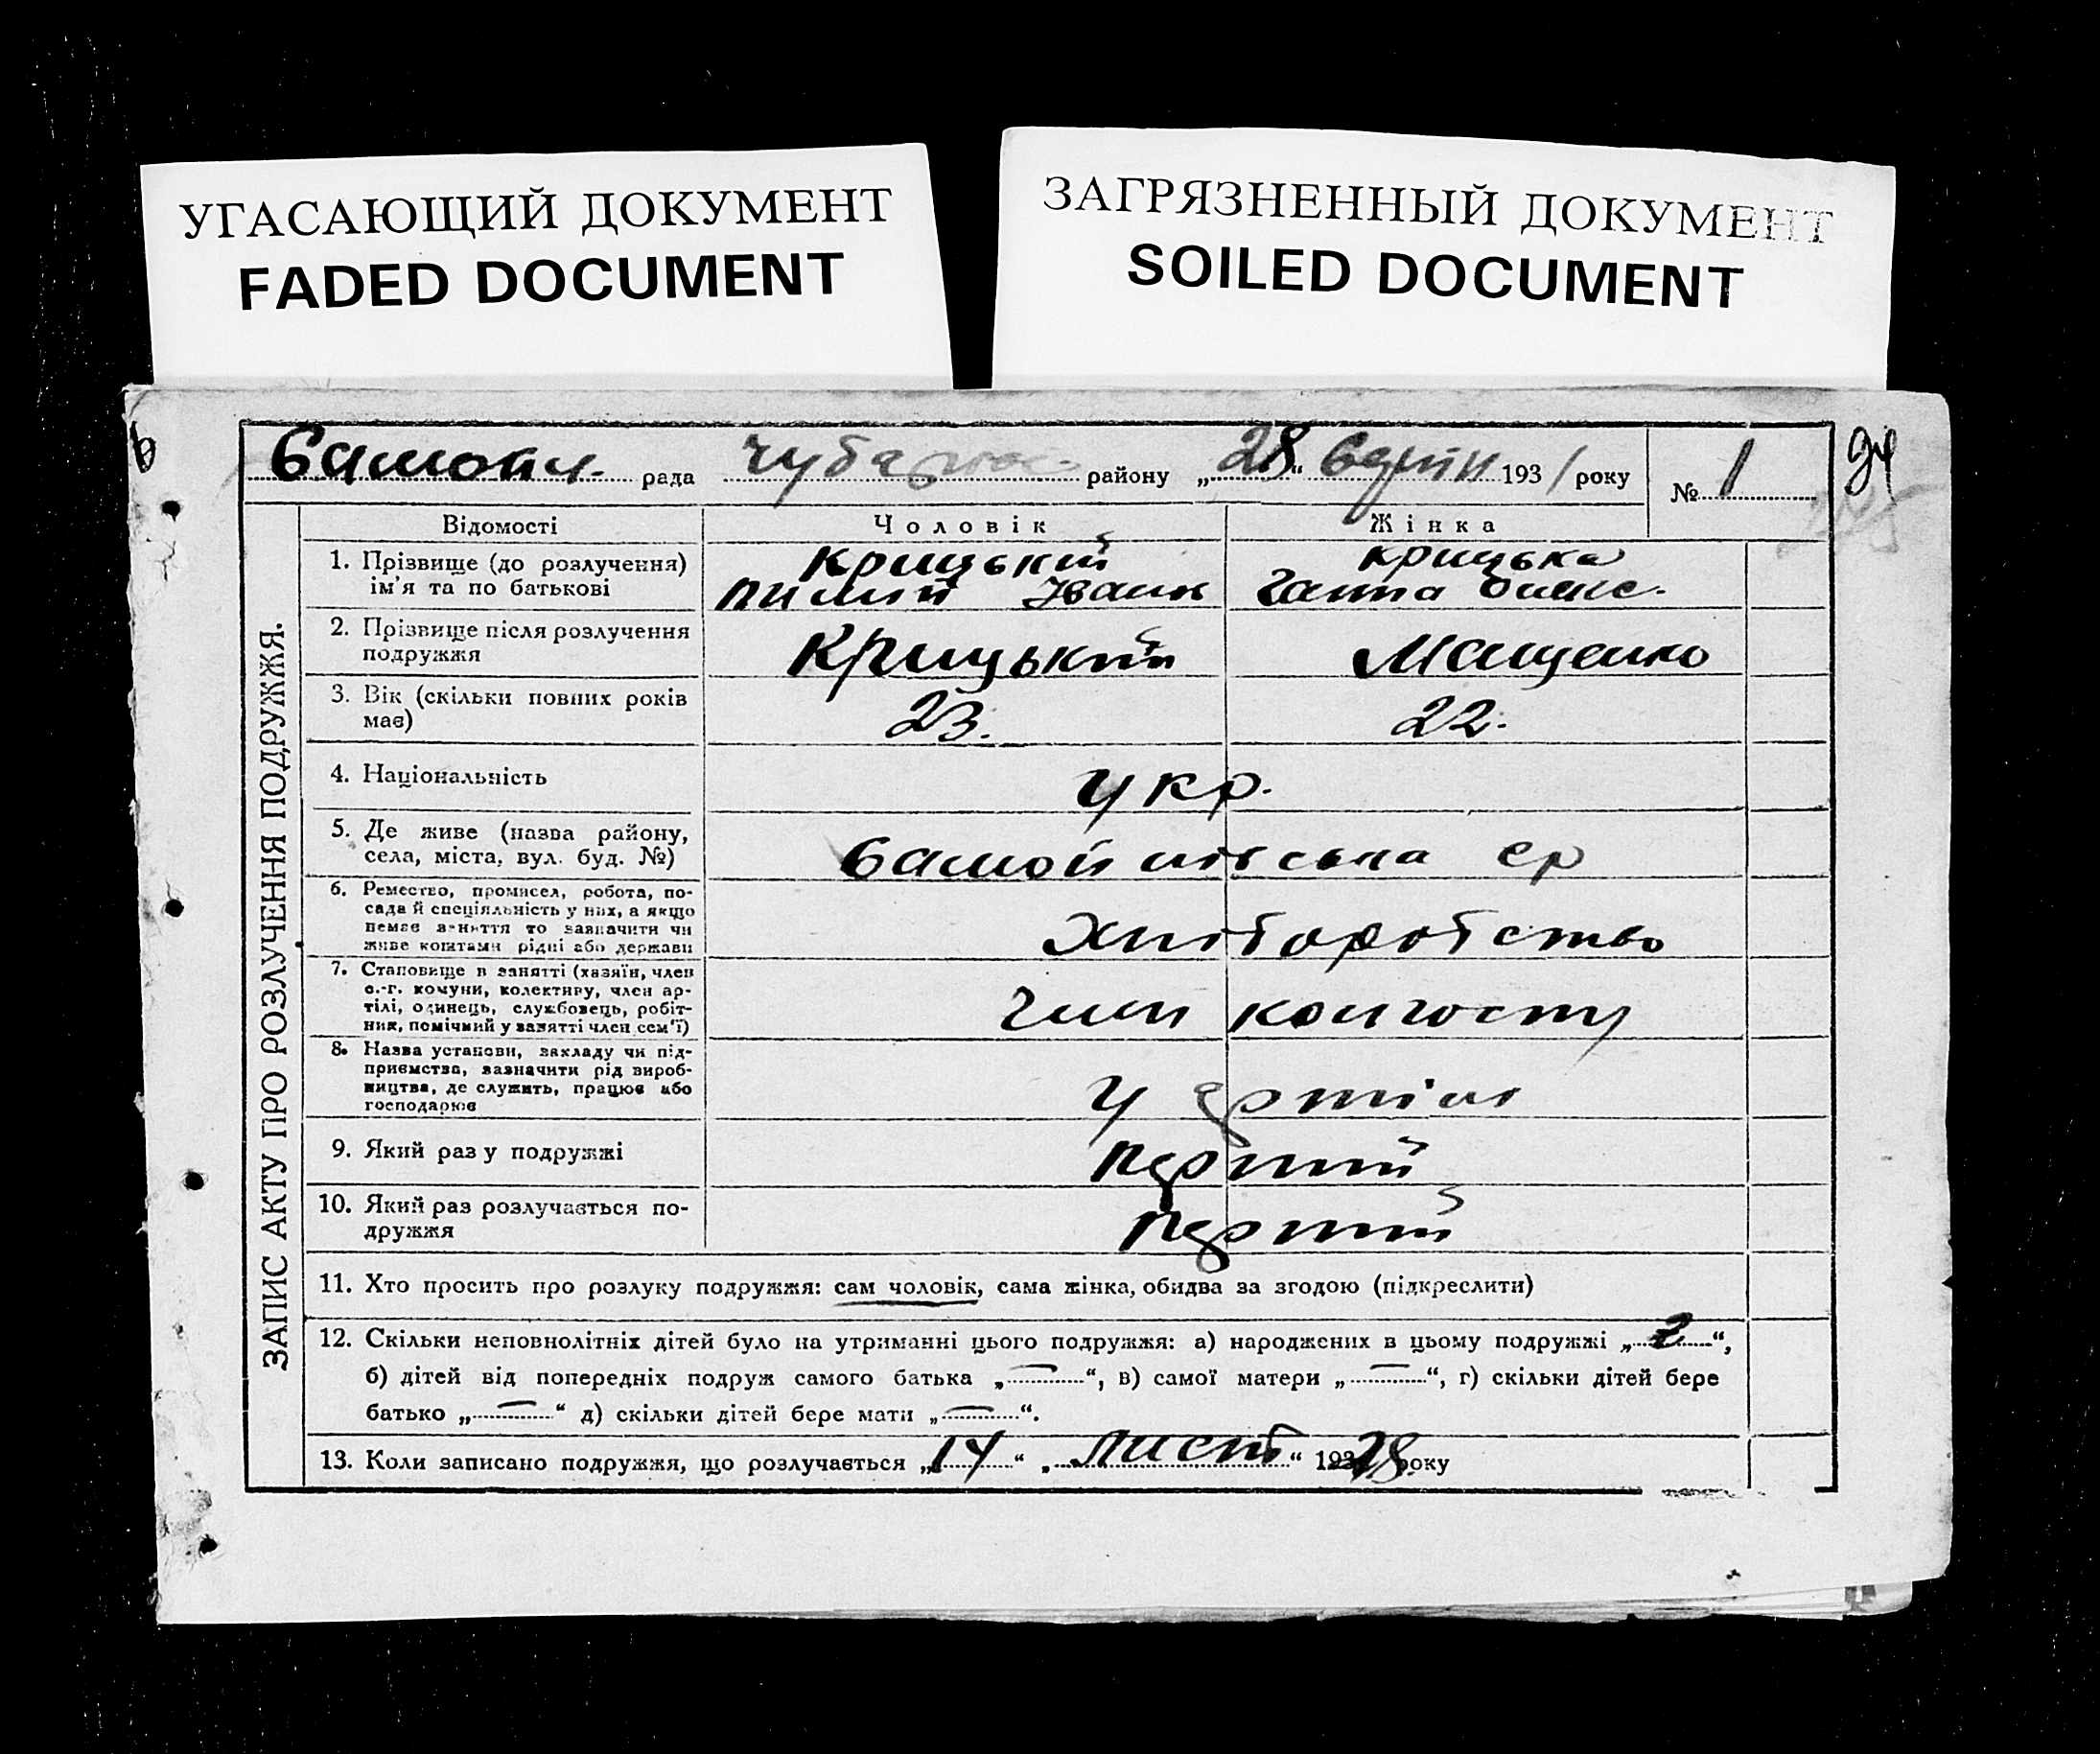 УГАСАЮЩИЙ ДОКУМЕНТ
FADED DOCUMENT
ЗАГРЯЗНЕННЫЙ ДОКУМЕНТ
SOILED DOCUMENT
рада района „28“ 1931 року № 1
ЗАПИС АКТУ ПРО РОЗЛУЧЕННЯ ПОДРУЖЖЯ.
Відомості Чоловік Жінка
1. Прізвище (до розлучення) Крицький Крицька
ім'я та по батькові Пилип Іванов Ганна
2. Прізвище після розлучення Крицький Мащенко
подружжя
3. Вік (скільки повних років 23. 22.
має)
4. Національність укр.
5. Де живе (назва району,
села, міста, вул. буд. №) ср
6. Ремество, промисел, робота, по-
сада й спеціяльність у них, а якщо
немає заняття то зазначити чи
живе коштами рідні або держави
Хліборобство
7. Становище в занятті (хазяїн, член
с.-г. комуни, колективу, член ар-
тілі, одинець, службовець, робіт-
ник, помічний у занятті член сем'ї)
член колгоспу
8. Назва установи, закладу чи під-
приємства, зазначити рід вироб-
ництва, де служить, працює або
господарює
у артілі
9. Який раз у подружжі перший
10. Який раз розлучається по-
дружжя перший
11. Хто просить про розлуку подружжя: сам чоловік, сама жінка, обидва за згодою (підкреслити)
12. Скільки неповнолітніх дітей було на утриманні цього подружжя: а) народжених в цьому подружжі „2“,
б) дітей від попередніх подруж самого батька „—“, в) самої матери „—“, г) скільки дітей бере
батько „—“ д) скільки дітей бере мати „—“.
13. Коли записано подружжя, що розлучається „14“ „лист“ 1928 року